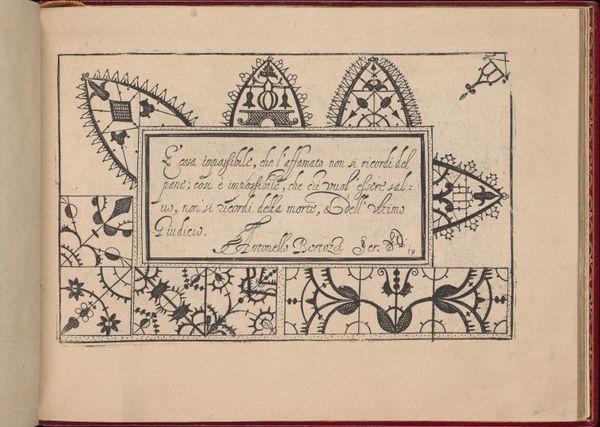 E cosa impossibile, che l'affamato non si ricordi del
pane; così è impossibile, che chi vuol' essere sal-
uo, non si ricordi della morte, & dell' vltimo
Giudicio.
Antonello Bertozzi Scr.
19